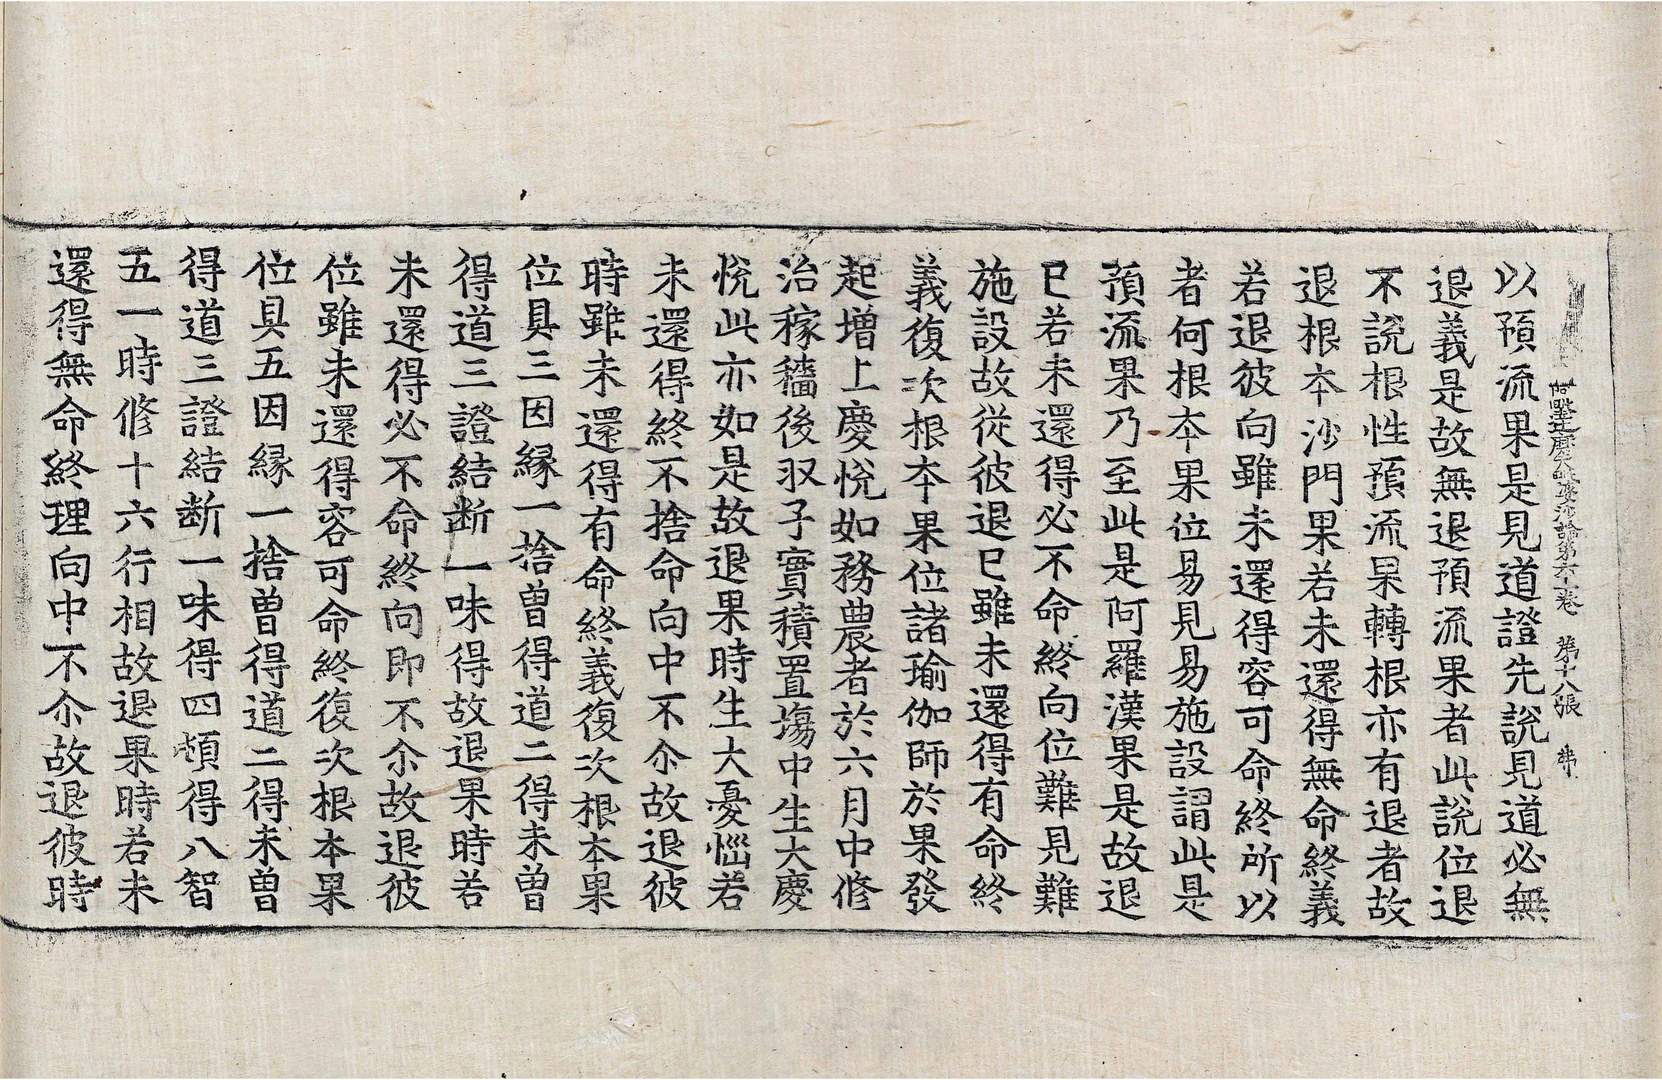 阿毗達磨大毗婆沙論第六十一卷　第十八張　弗
以預流果是見道證先說見道必無
退義是故無退預流果者此說位退
不說根性預流果轉根亦有退者故
退根本沙門果若未還得無命終義
若退彼向雖未還得容可命終所以
者何根本果位易見易施設謂此是
預流果乃至此是阿羅漢果是故退
已若未還得必不命終向位難見難
施設故從彼退已雖未還得有命終
義復次根本果位諸瑜伽師於果發
起增上慶悅如務農者於六月中修
治稼穡後収子實積置塲中生大慶
悅此亦如是故退果時生大憂惱若
未還得終不捨命向中不尒故退彼
時雖未還得有命終義復次根本果
位具三因緣一捨曾得道二得未曾
得道三證結断一味得故退果時若
未還得必不命終向即不尒故退彼
位雖未還得容可命終復次根本果
位具五因緣一捨曾得道二得未曾
得道三證結断一味得四頓得八智
五一時修十六行相故退果時若未
還得無命終理向中不尒故退彼時